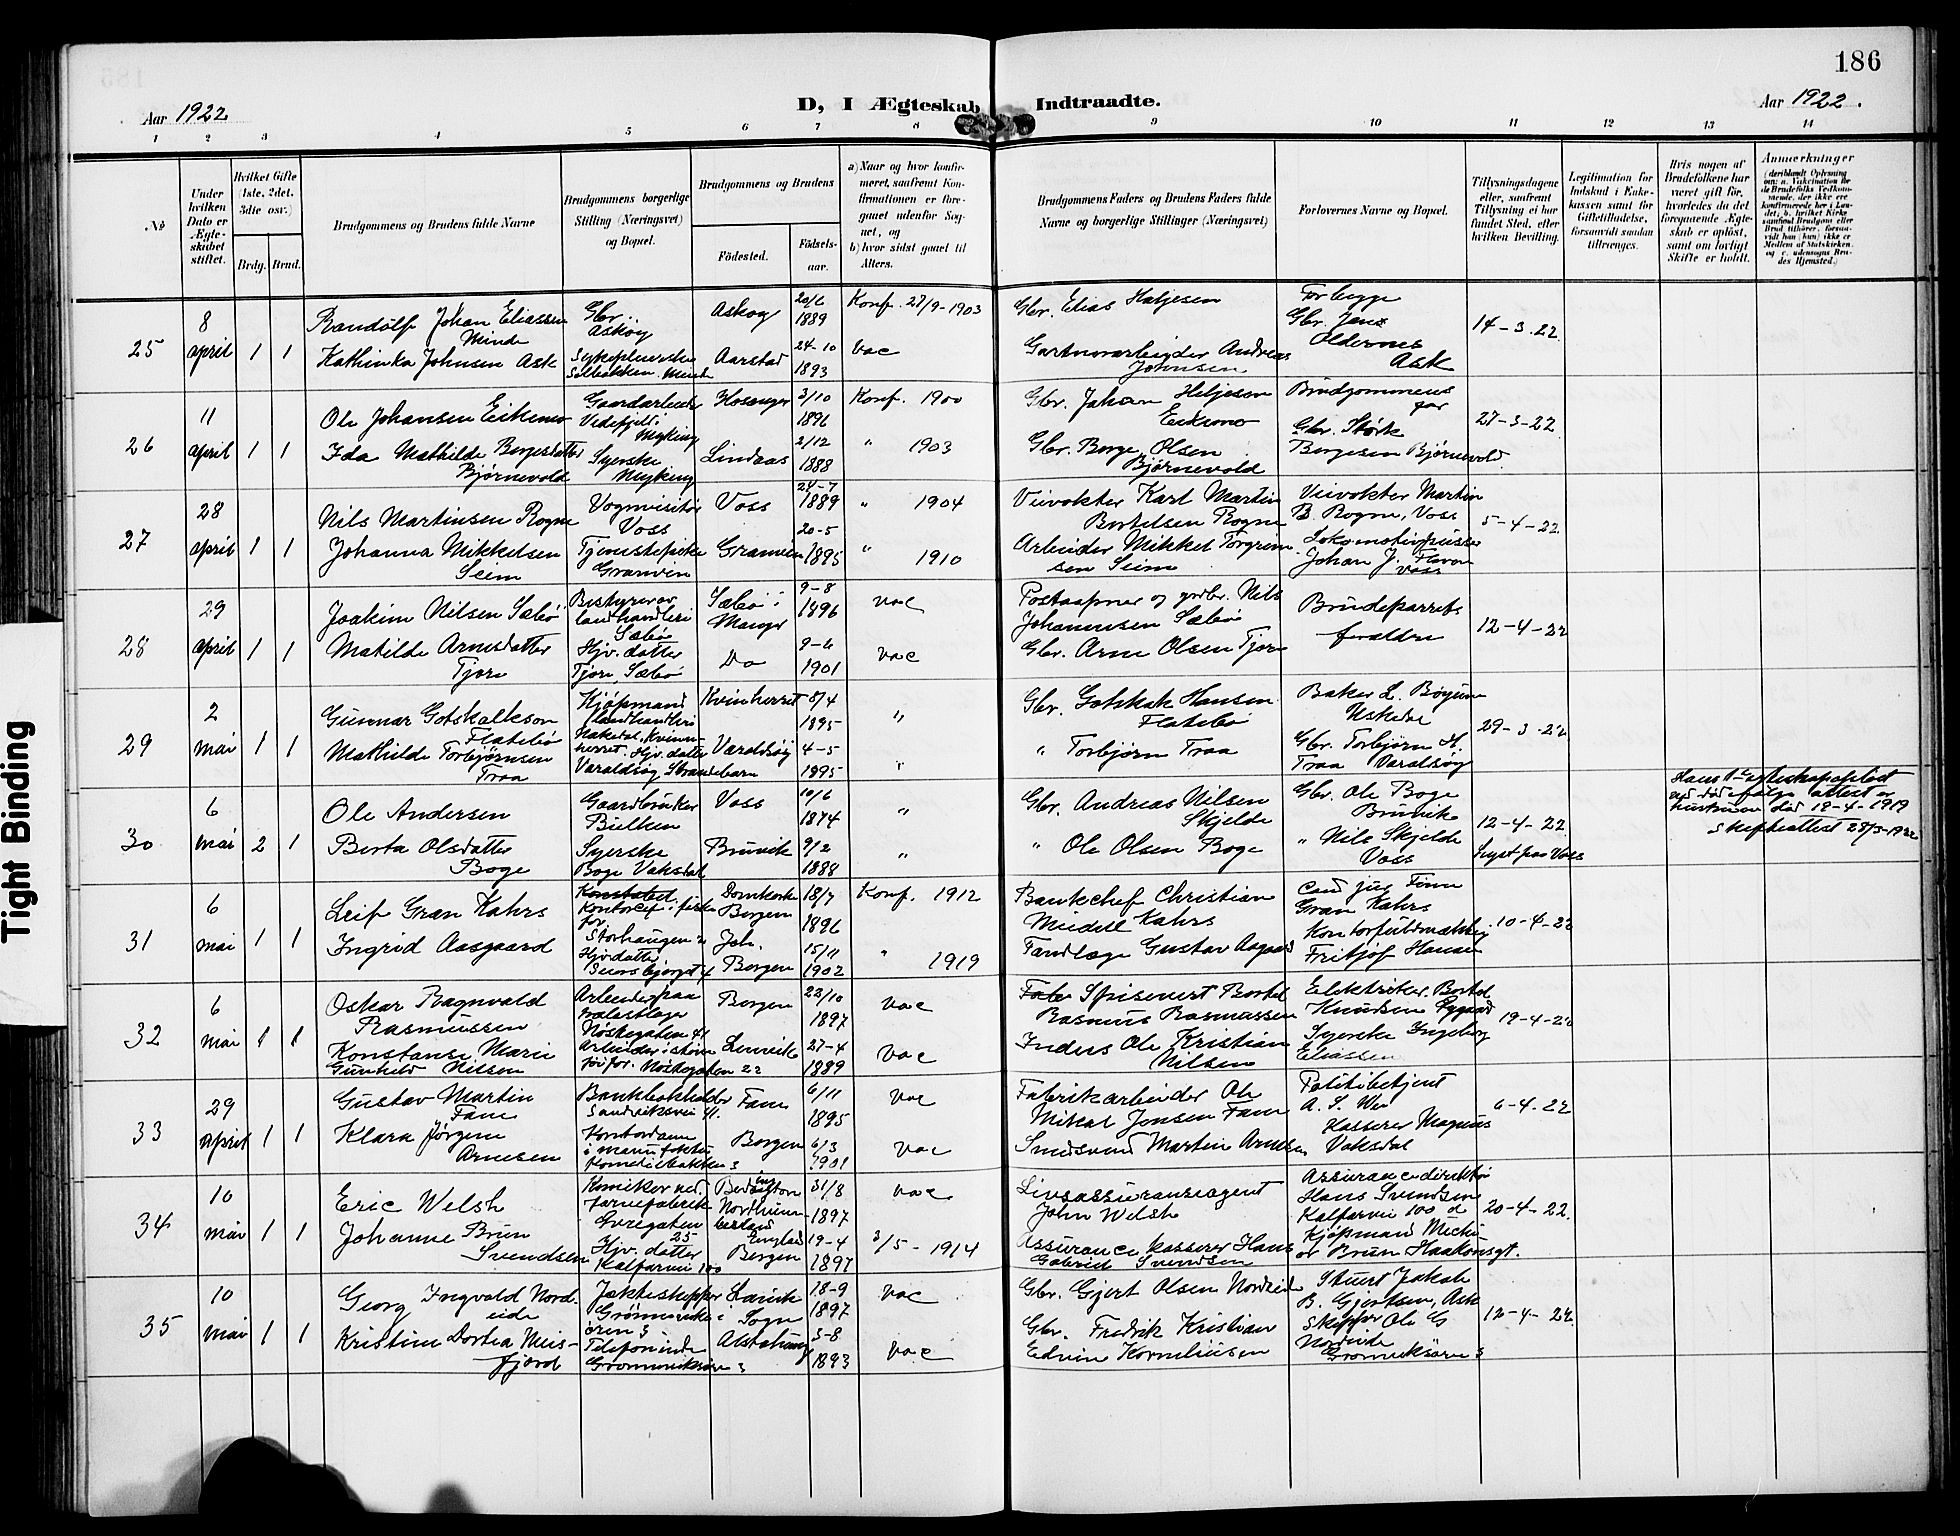 186
Aar 1922
D, I Ægteskab Indtraadte.
Aar 1922.
1 2 3 4 5 6 7 8 9 10 11 12 13 14
No
Under hvilken Dato er Ægteskabet stiftet.
Hvilket Gifte (1ste, 2det, 3die osv.)
Brdg. Brud.
Brudgommens og Brudens fulde Navne
Brudgommens borgerlige Stilling (Næringsvei) og Bopæl.
Brudgommens og Brudens
Födested.
Födselsaar.
a) Naar og hvor konfirmeret, saafremt Konfirmationen er foregaaet udenfor Sognet, og
b) hvor sidst gaaet til Alters.
Brudgommens Faders og Brudens Faders fulde Navne og borgerlige Stillinger (Næringsvei)
Forlovernes Navne og Bopæl.
Tillysningsdagene eller, saafremt Tillysning ei har fundet Sted, efter hvilken Bevilling.
Legitimation for Indskud i Enkekassen samt for Giftetilladelse, forsaavidt saadan tiltrænges.
Hvis nogen af Brudefolkene har været gift før, hvorledes da det foregaaende Ægteskab er oplöst, samt om lovligt Skifte er holdt.
Anmerkninger
25 8 april 1 1
Randolf Johan Eliassen Minde
Gbr. Askøy
Askøy 20/6 1889
Konf. 27/9-1903
Gbr. Elias Haljesen
Gbr. Jens Oldernes Ask
14-3-22
Kathinka Johnsen Ask
Aarstad 24-10 1893
vac
Gartnerarbeider Andreas Johnsen
26 11 april 1 1
Ole Johansen Eikemo
Hosanger 3/10 1896
Konf. 1900
Gbr. Johan Heljesen Eikemo
Brudgommens far
27-3-22
Ida Mathilde Børgesdatter Bjørnevold
Syerske Myking
Lindaas 2/12 1888
" 1903
Gbr. Børge Olsen Bjørnevold
Gbr. Størk Børgesen Bjørnevold
27 28 april 1 1
Nils Martinsen Rogne
Vognvisitør Voss
Voss 24-7 1889
" 1904
Veivokter Karl Martin Bertelsen Rogne
Veivokter Martin B. Rogne, Voss
5-4-22
Johanna Mikkelsen Seim
Tjenestepike Granvin
Granvin 20-5 1895
" 1910
Arbeider Mikkel Torgrimsen Seim
Lokomotivpusser Johan J. Voss
28 29 april 1 1
Joakim Nilsen Sæbø
Bestyrer av landhandleri Sæbø
Sæbø i Manger 9-8 1896
vac
Postaapner og gbr. Nils Johannesen Sæbø
Brudeparrets forældre
12-4-22
Matilde Arnesdatter Tjore
Hjv. datter Tjore, Sæbø
Do 9-6 1901
vac
Gbr. Arne Olsen Tjore
29 2 mai 1 1
Gunnar Gotskalkson Flatebø
Kjøpmand landhandleri
Kvinherret 8/4 1895
"
Gbr. Gotskalk Hansen Flatebø
Baker L. Bøgum Uskedal
29-3-22
Mathilde Torbjørnsen Traa
Hjv. datter Varaldsøy, Strandebarm
Varaldsøy 4-5 1895
"
" Torbjørn Traa
Gbr. Torbjørn H. Traa Varaldsøy
30 6 mai 2 1
Ole Andersen
Gaardbruker
Voss 10/6 1874
"
Gbr. Andreas Nilsen Skjelde
Gbr. Ole Boge Bruvik
12-4-22
lyst paa Voss
Berta Olsdatter Boge
Syerske Boge Vaksdal
Bruvik 9/2 1888
"
" Ole Olsen Boge
" Nils Skjelde Voss
Hans 1ste egteskap opløst ved død ifølge attest er hustruen død 19-4-1919
Skifteattest 28/3-1922
31 6 mai 1 1
Leif Gran Kahrs
Domkirk. Bergen 18/7 1896
Konf. 1912
Bankchef Christian Miidell Kahrs
Cand jur Finn Gran Kahrs
10-4-22
Ingrid Aasgaard
Hjv. datter
Joh. Bergen 15/11 1902
" 1919
Tandlæge Gustav Aagaard
Kontorfuldmægtig Fritjof Hansen
32 6 mai 1 1
Oskar Ragnvald Rasmussen
Arbeider paa
Nøstegaten 41
Bergen 22/10 1897
vac
Spisevert Bertel Rasmus Rasmussen
Elektriker Bertel Knudsen Rygaard
19-4-22
Konstanse Marie Gunhild Nilsen
Nøstegaten 22
Lenvik 27-4 1889
vac
Inders Ole Kristian Nilsen
Syerske Ingeborg Eliassen
33 29 april 1 1
Gustav Martin Fane
Bankbokholder Sandviksvei 41.
Fane 6/11 1895
vac
Fabrikarbeider Ole Mikal Jonsen Fane
Politibetjent A. S. Wee
6-4-22
Klara Jørgine Arnesen
Kontordame i manufaktur Komediebakken 3
Bergen 6/3 1901
vac
Smedsvend Martin Arnesen
Kasserer Magnus Vaksdal
34 10 mai 1 1
Eric Welsh
Kemiker ved farvefabrik Geregaten 25
Bedlington Northumberland England 31/8 1897
vac
Livsassuranseagent John Welsh
Assurancedirektør Hans Svendsen Kalfarvei 100 d
20-4-22.
Johanne Brun Svendsen
Hjv. datter Kalfarvei 100
Bergen 19-4 1897
3/5-1914
Assurancekasserer Hans Gabriel Svendsen
Kjøpmand Michael Brun Haakonsgt.
35 10 mai 1 1
Georg Ingvald Nordeide
Jakteskipper Grønnevikøren 3
Lavik i Sogn 18-9 1897
vac
Gbr. Gjert Olsen Nordeide
Stuert Jakob B. Gjertsen, Ask
12-4-22.
Kristine Dortea Meisfjord
Telefonistinde Grønneviksøren 3
Alstahaug 3-8 1893
vac
Gbr. Fredrik Kristian Edvin Korneliussen
Skipper Ole G Nordeide Grønneviksøren 3
Tight Binding